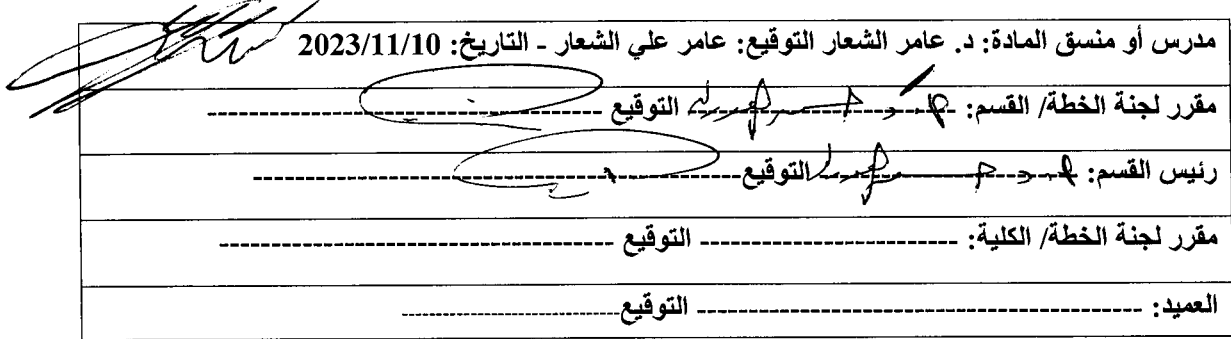 مدرس أو منسق المادة: د. عامر الشعار التوقيع: عامر علي الشعار - التاريخ: 2023/11/10
مقرر لجنة الخطة/ القسم: التوقيع
رئيس القسم: التوقيع
مقرر لجنة الخطة/ الكلية: التوقيع
العميد: التوقيع